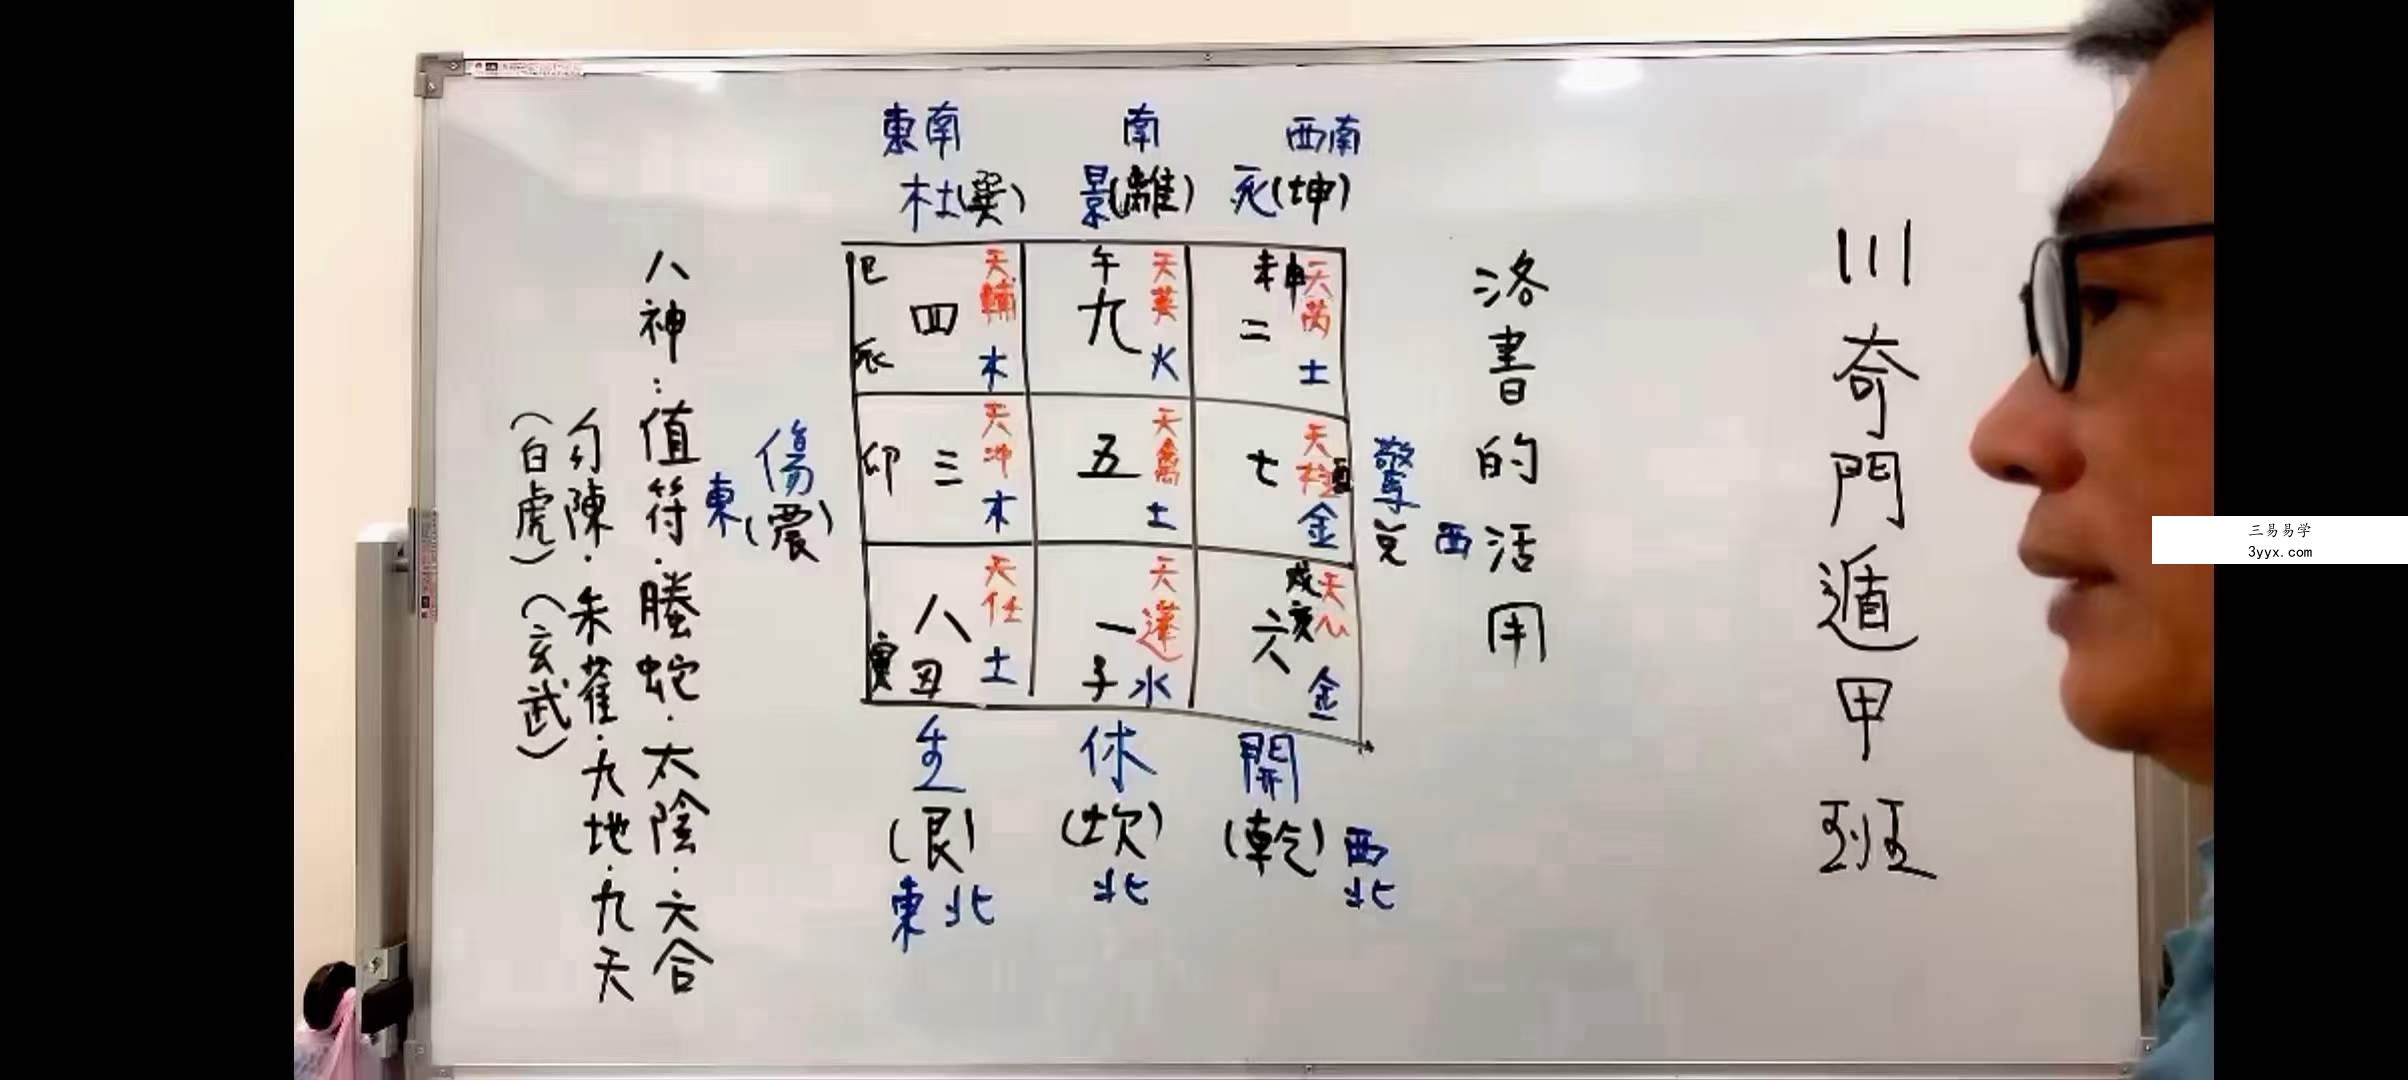 川奇門遁甲班
洛書的活用
東南
南
西南
杜(巽)
景(離)
死(坤)
巳
辰
四
天輔
木
午
九
天英
火
未申
二
天芮
土
東
傷
(震)
卯
三
天冲
木
五
天禽
土
七
天柱
酉
金
驚
兌
西
寅
八
丑
天任
土
一
子
天蓬
水
戌
亥
六
天心
金
生
(艮)
東北
休
(坎)
北
開
(乾)
西北
八神:值符·螣蛇·太陰·六合
勾陳·朱雀·九地·九天
(白虎)(玄武)
三易易学
3yyx.com